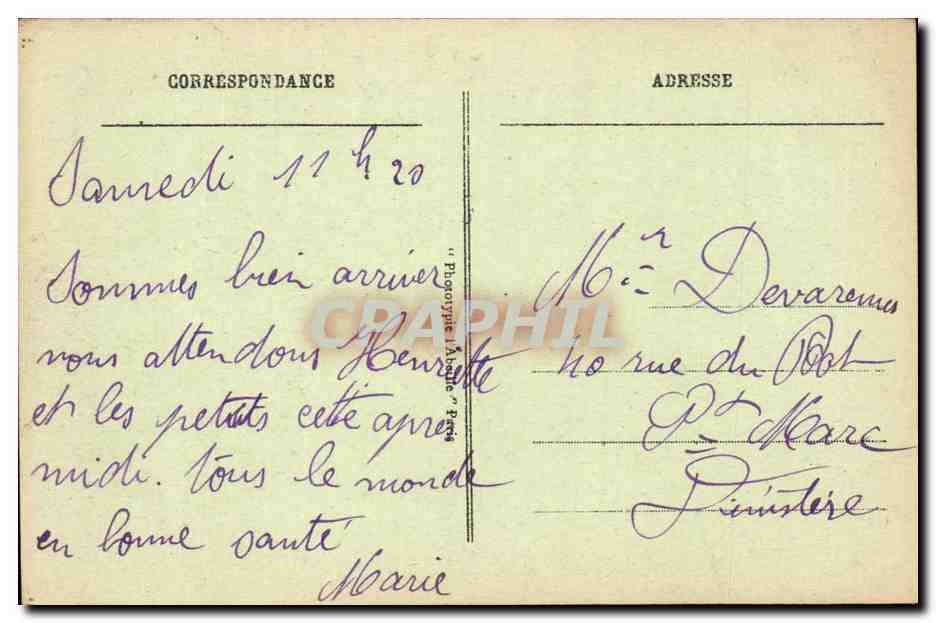 CORRESPONDANCE
Samedi 11 h 20
Sommes bien arriver
nous attendons Henriette
et les petits cette après
midi. tous le monde
en bonne santé
Marie
"Phototypie l'Abeille" Paris
CRAPHIL
ADRESSE
Mr Devarennes
40 rue du
St Marc
Finistère